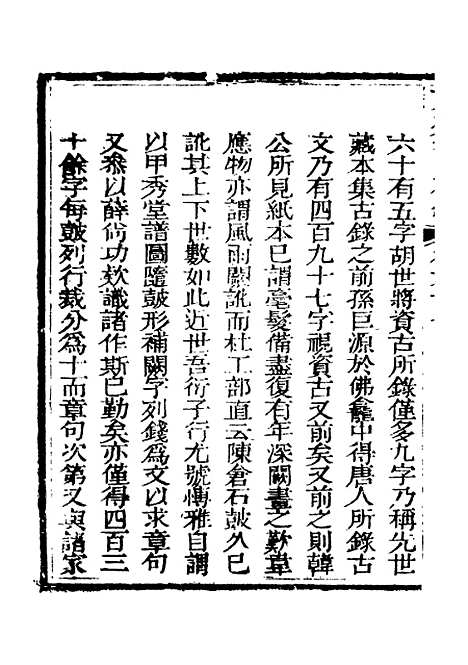 六十有五字胡世將資古所錄僅多九字乃稱先世
藏本集古錄之前孫巨源於佛龕中得唐人所錄古
文乃有四百九十七字視資古又前矣又前之則韓
公所見紙本已謂毫髮備盡復有年深闕畫之歎韋
應物亦謂風雨闕訛而杜工部直云陳倉石皷久已
訛其上下世數如此近世吾衍子行尤號愽雅自謂
以甲秀堂譜圖隨皷形補闕字列錢爲文以求章句
又叅以薛尚功欵識諸作斯巳勤矣亦僅得四百三
十餘字每皷列行裁分爲十而章句次第又與諸家